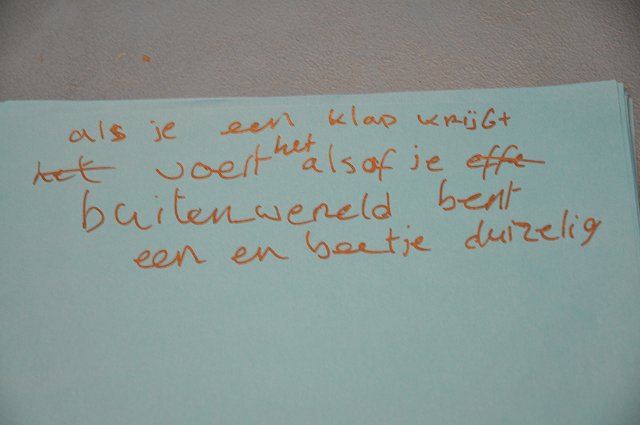 als je een klap krijGt
het voert het alsof je effe
buitenwereld bent
een en beetje duizelig